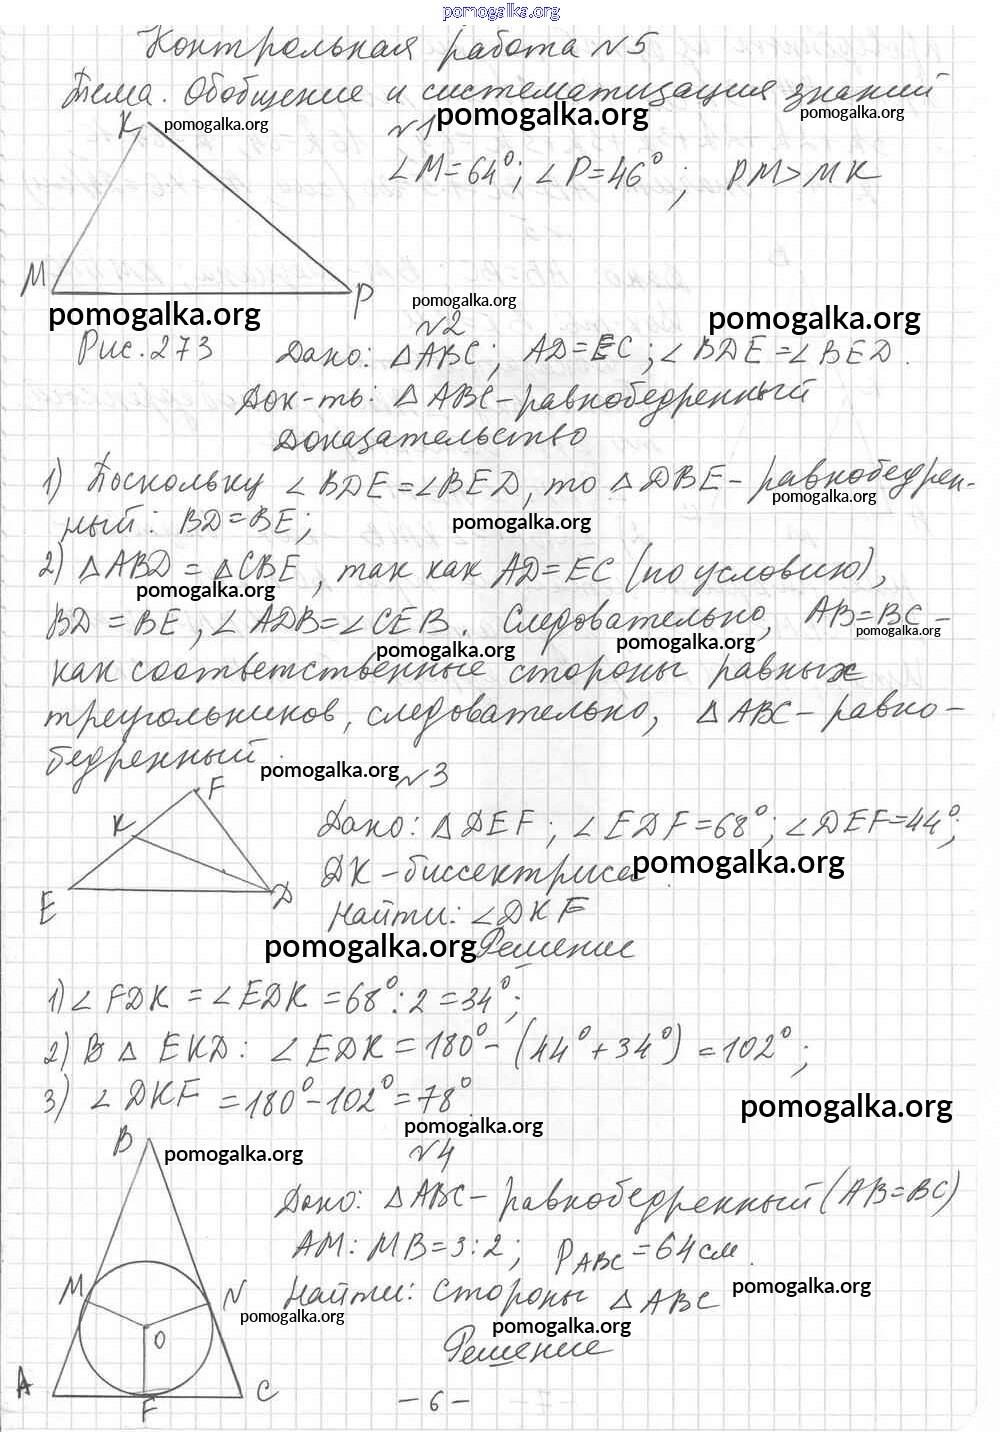 pomogalka.org
Контрольная работа №5
Тема. Обобщение и систематизация знаний
K pomogalka.org №1 pomogalka.org pomogalka.org
∠M=64°; ∠P=46° ; PM>MK
M P
pomogalka.org pomogalka.org pomogalka.org
№2
Рис. 273 Дано: △ABC; AD=EC; ∠BDE=∠BED.
Док-ть: △ABC-равнобедренный
Доказательство
1) Поскольку ∠BDE=∠BED, то △DBE-равнобедрен-
pomogalka.org
ный: BD=BE; pomogalka.org
2) △ABD=△CBE, так как AD=EC (по условию),
pomogalka.org
BD=BE, ∠ADB=∠CEB. Следовательно, AB=BC-
pomogalka.org pomogalka.org pomogalka.org
как соответственные стороны равных
треугольников, следовательно, △ABC-равно-
бедренный.
pomogalka.org №3
F
K Дано: △DEF; ∠EDF=68°; ∠DEF=44°;
DK-биссектриса. pomogalka.org
E D Найти: ∠DKF
pomogalka.org Решение
1) ∠FDK=∠EDK=68°:2=34°;
2) В △EKD: ∠EDK=180°-(44°+34°)=102°;
3) ∠DKF=180°-102°=78°.
pomogalka.org pomogalka.org
B pomogalka.org №4
Дано: △ABC-равнобедренный (AB=BC)
AM:MB=3:2; P ABC=64см.
M N Найти: стороны △ABC pomogalka.org
pomogalka.org pomogalka.org
O Решение
A F C
-6-